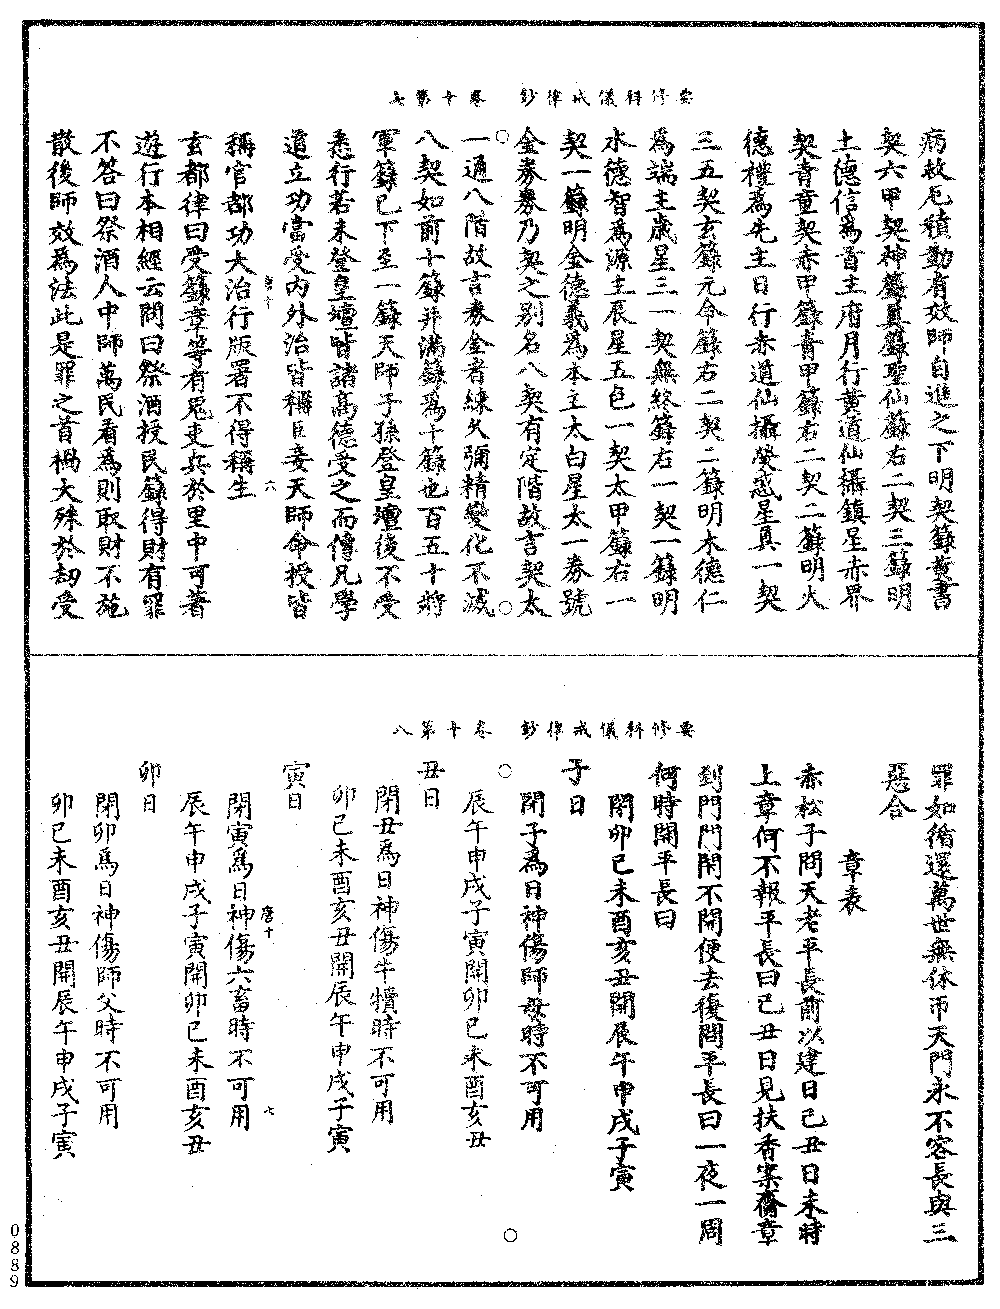 要修科儀戒律鈔　卷十第七
病救厄積勤有效師自進之下明契籙黃書
契六甲契神籙真籙聖仙籙右二契三籙明
土德信為首主府月行黃道仙攝鎮星赤界
契青童契赤甲籙青甲籙右二契二籙明火
德禮為先主日行赤道仙攝熒惑星真一契
三五契玄籙元命籙右二契二籙明木德仁
為端主歲星三一契無終籙右一契一籙明
水德智為源主辰星五色一契太甲籙右一
契一籙明金德義為本主太白星太一券號
金券券乃契之別名八契有定階故言契太
一通八階故言券金者練久彌精變化不滅
八契如前十籙并滿籙為千籙也百五十將
軍籙已下至一籙天師子孫登皇壇後不受
悉行若未登皇壇皆諸高德受之而傳凡學
道立功當受內外治皆稱臣妾天師命授皆
稱官都功大治行版署不得稱生
唐十　六
玄都律曰受籙章等有鬼吏兵於里中可著
遊行本相經云問曰祭酒授民籙得財有罪
不答曰祭酒人中師萬民看為則取財不施
散後師效為法此是罪之首禍大殊於劫受
要修科儀戒律鈔　卷十第八
罪如循還萬世無休帀天門永不容長與三
惡合
章表
赤松子問天老平長前以建日己丑日未時
上章何不報平長曰己丑日見扶香案齎章
到門門閉不開便去復問平長曰一夜一周
何時開平長曰
閉卯巳未酉亥丑開辰午申戌子寅
子日
閉子為日神傷師母時不可用
辰午申戌子寅開卯巳未酉亥丑
丑日
閉丑為日神傷牛犢時不可用
卯巳未酉亥丑開辰午申戌子寅
寅日
閉寅為日神傷六畜時不可用
唐十　七
辰午申戌子寅開卯巳未酉亥丑
卯日
閉卯為日神傷師父時不可用
卯巳未酉亥丑開辰午申戌子寅
0889